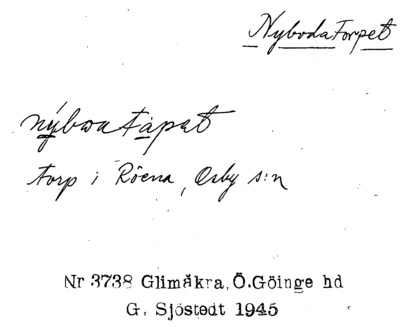 Nybodatorpet
nýbωatåpət
torp i Röena, Osby s:n
Nr 3738 Glimåkra, Ö.Göinge hd
G. Sjöstedt 1945